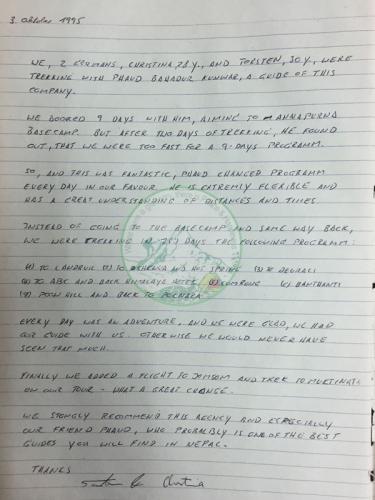 3. Oktober 1995
WE, 2 GERMANS, CHRISTINA, 28 Y., AND TORSTEN, 30 Y., WERE
TREKKING WITH PHAUD BAHADUR KUNWAR, A GUIDE OF THIS
COMPANY.
WE BOOKED 9 DAYS WITH HIM, AIMING TO ANNAPURNA
BASECAMP. BUT AFTER TWO DAYS OF TREKKING, HE FOUND
OUT, THAT WE WERE TOO FAST FOR A 9-DAYS PROGRAMM.
SO, AND THIS WAS FANTASTIC, PHAUD CHANGED PROGRAMM
EVERY DAY IN OUR FAVOUR. HE IS EXTREMLY FLEXIBLE AND
HAS A GREAT UNDERSTANDING OF DISTANCES AND TIMES.
INSTEAD OF GOING TO THE BASECAMP AND SAME WAY BACK,
WE WERE TREKKING IN DAYS THE FOLLOWING PROGRAMM:
(1) TO LANDRUK (2) TO AND HOT SPRING (3) TO DEURALI
(4) TO ABC AND BACK HIMALAYA HOTEL (5) (6) BANTHANTI
(7) POON HILL AND BACK TO POCHARA
EVERY DAY WAS AN ADVENTURE, AND WE WERE GLAD, WE HAD
OUR GUIDE WITH US. OTHERWISE WE WOULD NEVER HAVE
SEEN THAT MUCH.
FINALLY WE ADDED A FLIGHT TO JOMSOM AND TREK TO MUKTINATH
ON OUR TOUR - WHAT A GREAT CHANGE.
WE STONGLY RECOMMEND THIS AGENCY AND ESPECIALLY
OUR FRIEND PHAUD, WHO PROBABLY IS ONE OF THE BEST
GUIDES YOU WILL FIND IN NEPAL.
THANKS